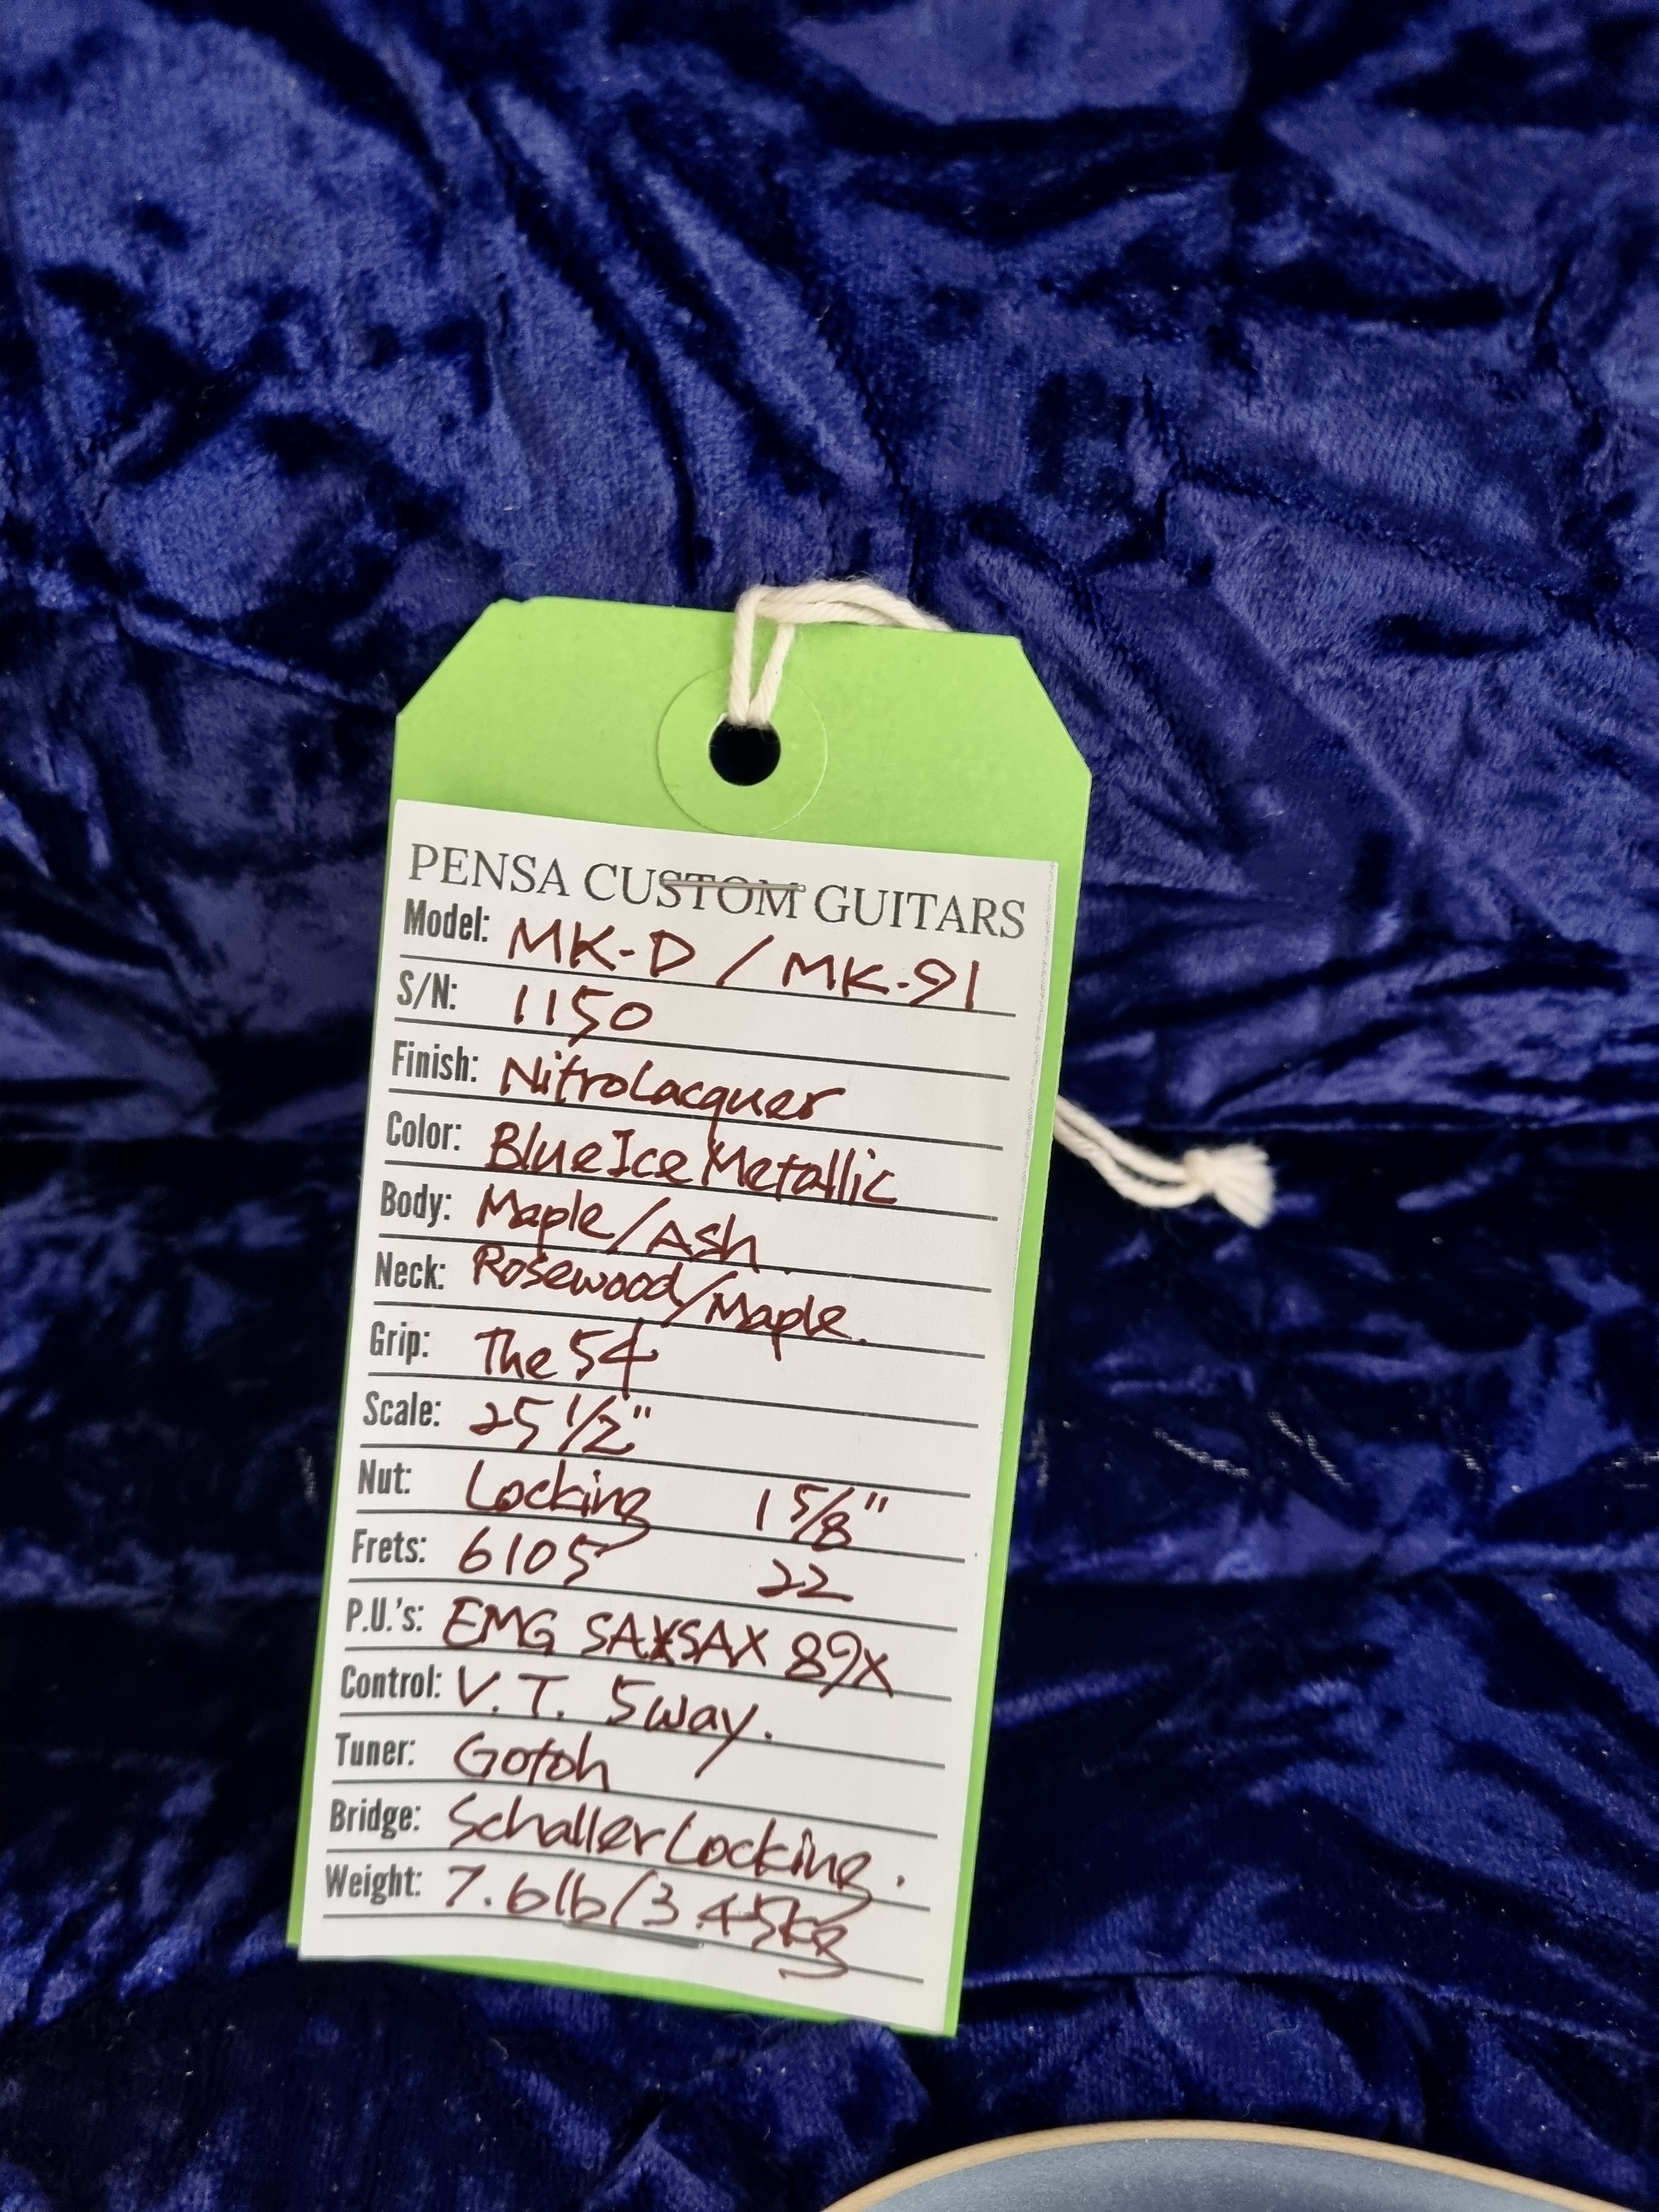 PENSA CUSTOM GUITARS
Model: MK-D / MK-91
S/N: 1150
Finish: Nitro Lacquer
Color: Blue Ice Metallic
Body: Maple/Ash.
Neck: Rosewood/Maple.
Grip: The 54
Scale: 25 1/2"
Nut: Locking 1 5/8"
Frets: 6105 22
P.U.'s: EMG SAX SAX 89X
Control: V. T. 5way.
Tuner: Gotoh
Bridge: Schaller Locking.
Weight: 7.6lb/3.45kg